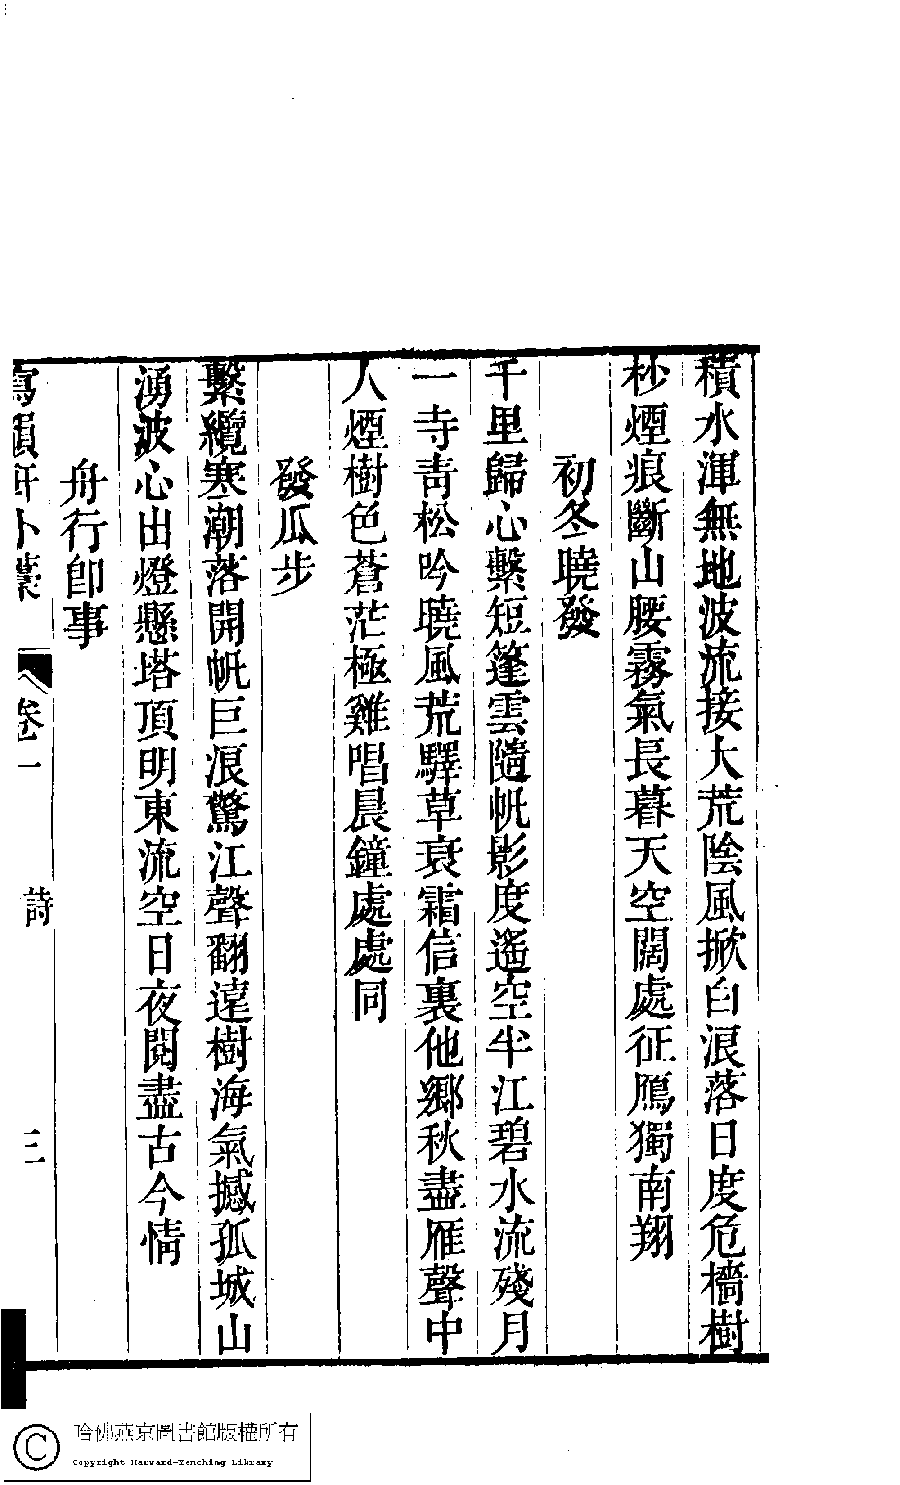 積水渾無地波流接大荒陰風掀白浪落日度危檣樹
杪煙痕斷山腰霧氣長暮天空闊處征鴈獨南翔
初冬曉發
千里歸心繫短篷雲隨帆影度遙空半江碧水流殘月
一寺青松吟曉風荒驛草衰霜信裏他鄉秋盡雁聲中
人煙樹色蒼茫極雞唱晨鐘處處同
發瓜步
繫纜寒潮落開帆巨浪驚江聲翻遠樹海氣撼孤城山
湧波心出燈懸塔頂明東流空日夜閱盡古今情
舟行卽事
寫韻軒小藁 卷一 詩 三
哈佛燕京圖書館版權所有
Copyright Harvard-Yenching Library